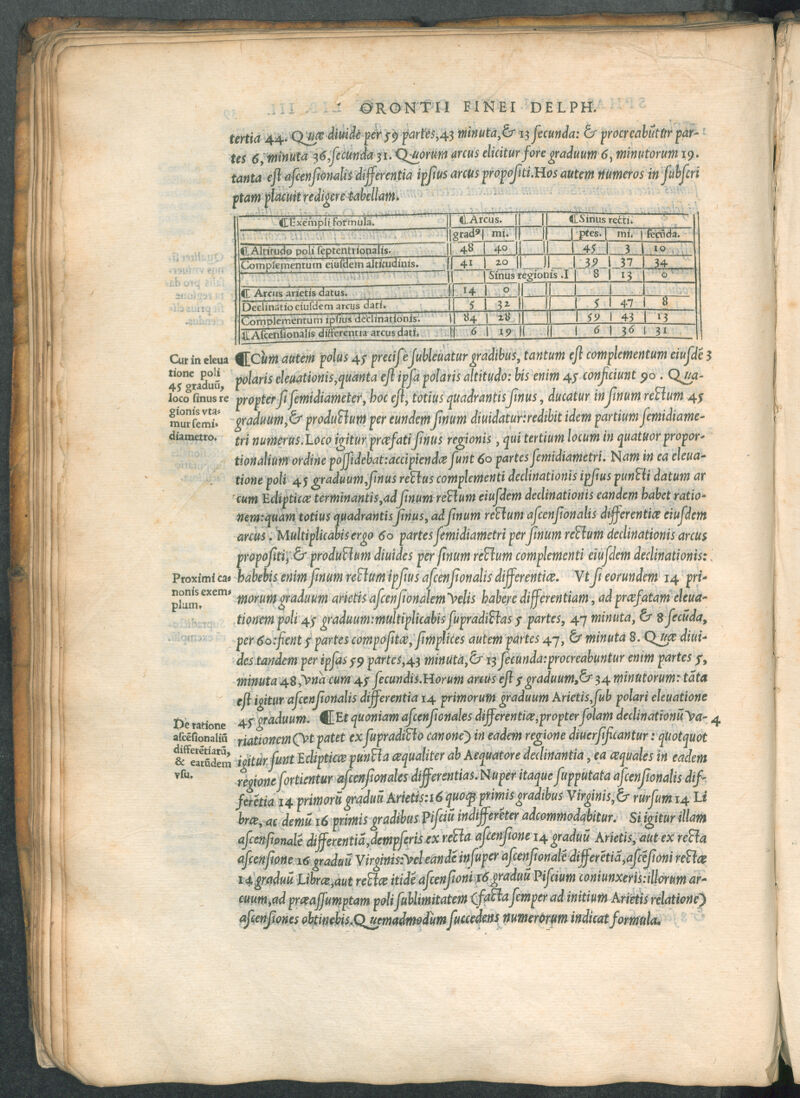 ORONTII FINEI DELPH.
tertia 44. Quæ diuide per 59 partes, 43 minuta, & 13 secunda: & procreabũtur par-
tes 6, minuta 36, secunda 31. Quorum arcus elicitur fore graduum 6, minutorum 19.
tanta est ascensionalis differentia ipsius arcus propositi. Hos autem numeros in subscri
ptam placuit redigere tabellam.
¶ Exempli formula. ¶ Arcus. ¶ Sinus recti.
gradꝰ mi. ptes. mi. secũda.
¶ Altitudo poli septentrionalis. 48 40 45 3 10
Complementum eiusdem altitudinis. 41 20 39 37 34
Sinus regionis .I 8 13 0
¶ Arcus arietis datus. 14 0
Declinatio eiusdem arcus dati. 5 32 5 47 8
Complementum ipsius declinationis. 84 28 59 43 13
¶ Ascensionalis differentia arcus dati. 6 19 6 36 31
Cur in eleua
tione poli
45 graduũ,
loco sinus re
gionis vta-
mur semi-
diametro.
¶ Cùm autem polus 45 precise subleuatur gradibus, tantum est complementum eiusdẽ 3
polaris eleuationis, quanta est ipsa polaris altitudo: bis enim 45 conficiunt 90. Qua-
propter si semidiameter, hoc est, totius quadrantis sinus, ducatur in sinum rectum 45
graduum, & productum per eundem sinum diuidatur: redibit idem partium semidiame-
tri numerus. Loco igitur præfati sinus regionis, qui tertium locum in quatuor propor-
tionalium ordine possidebat: accipiendæ sunt 60 partes semidiametri. Nam in ea eleua-
tione poli 45 graduum, sinus rectus complementi declinationis ipsius puncti datum ar
cum Eclipticæ terminantis, ad sinum rectum eiusdem declinationis eandem habet ratio-
nem: quam totius quadrantis sinus, ad sinum rectum ascensionalis differentiæ eiusdem
arcus. Multiplicabis ergo 60 partes semidiametri per sinum rectum declinationis arcus
propositi, & productum diuides per sinum rectum complementi eiusdem declinationis:
Proximi ca-
nonis exem-
plum.
habebis enim sinum rectum ipsius ascensionalis differentiæ. Vt si eorundem 14 pri-
morum graduum arietis ascensionalem velis habere differentiam, ad præfatam eleua-
tionem poli 45 graduum: multiplicabis supradictas 5 partes, 47 minuta, & 8 secũda,
per 60: fient 5 partes compositæ, simplices autem partes 47, & minuta 8. Quæ diui-
des tandem per ipsas 59 partes, 43 minuta, & 13 secunda: procreabuntur enim partes 5,
minuta 48, vna cum 45 secundis. Horum arcus est 5 graduum, & 34 minutorum: tãta
est igitur ascensionalis differentia 14 primorum graduum Arietis, sub polari eleuatione
De ratione
ascẽsionaliũ
differẽtiarũ,
& earũdem
vsu.
45 graduum. ¶ Et quoniam ascensionales differentiæ, propter solam declinationũ va- 4
riationem (vt patet ex supradicto canone) in eadem regione diuersificantur: quotquot
igitur sunt Eclipticæ puncta æqualiter ab Aequatore declinantia, ea æquales in eadem
regione sortientur ascensionales differentias. Nuper itaque supputata ascensionalis dif-
ferẽtia 14 primorũ graduũ Arietis: 16 quoqꝫ primis gradibus Virginis, & rursum 14 Li
bræ, ac demũ 16 primis gradibus Pisciũ indifferẽter adcommodabitur. Si igitur illam
ascensionalẽ differentiã, dempseris ex recta ascensione 14 graduũ Arietis, aut ex recta
ascensione 16 graduũ Virginis: vel eandẽ insuper ascensionalẽ differẽtiã, ascẽsioni rectæ
14 graduũ Libræ, aut rectæ itidẽ ascensioni 16 graduũ Piscium coniunxeris: illorum ar-
cuum, ad præassumptam poli sublimitatem (facta semper ad initium Arietis relatione)
ascensiones obtinebis. Quemadmodum succedens numerorum indicat formula.